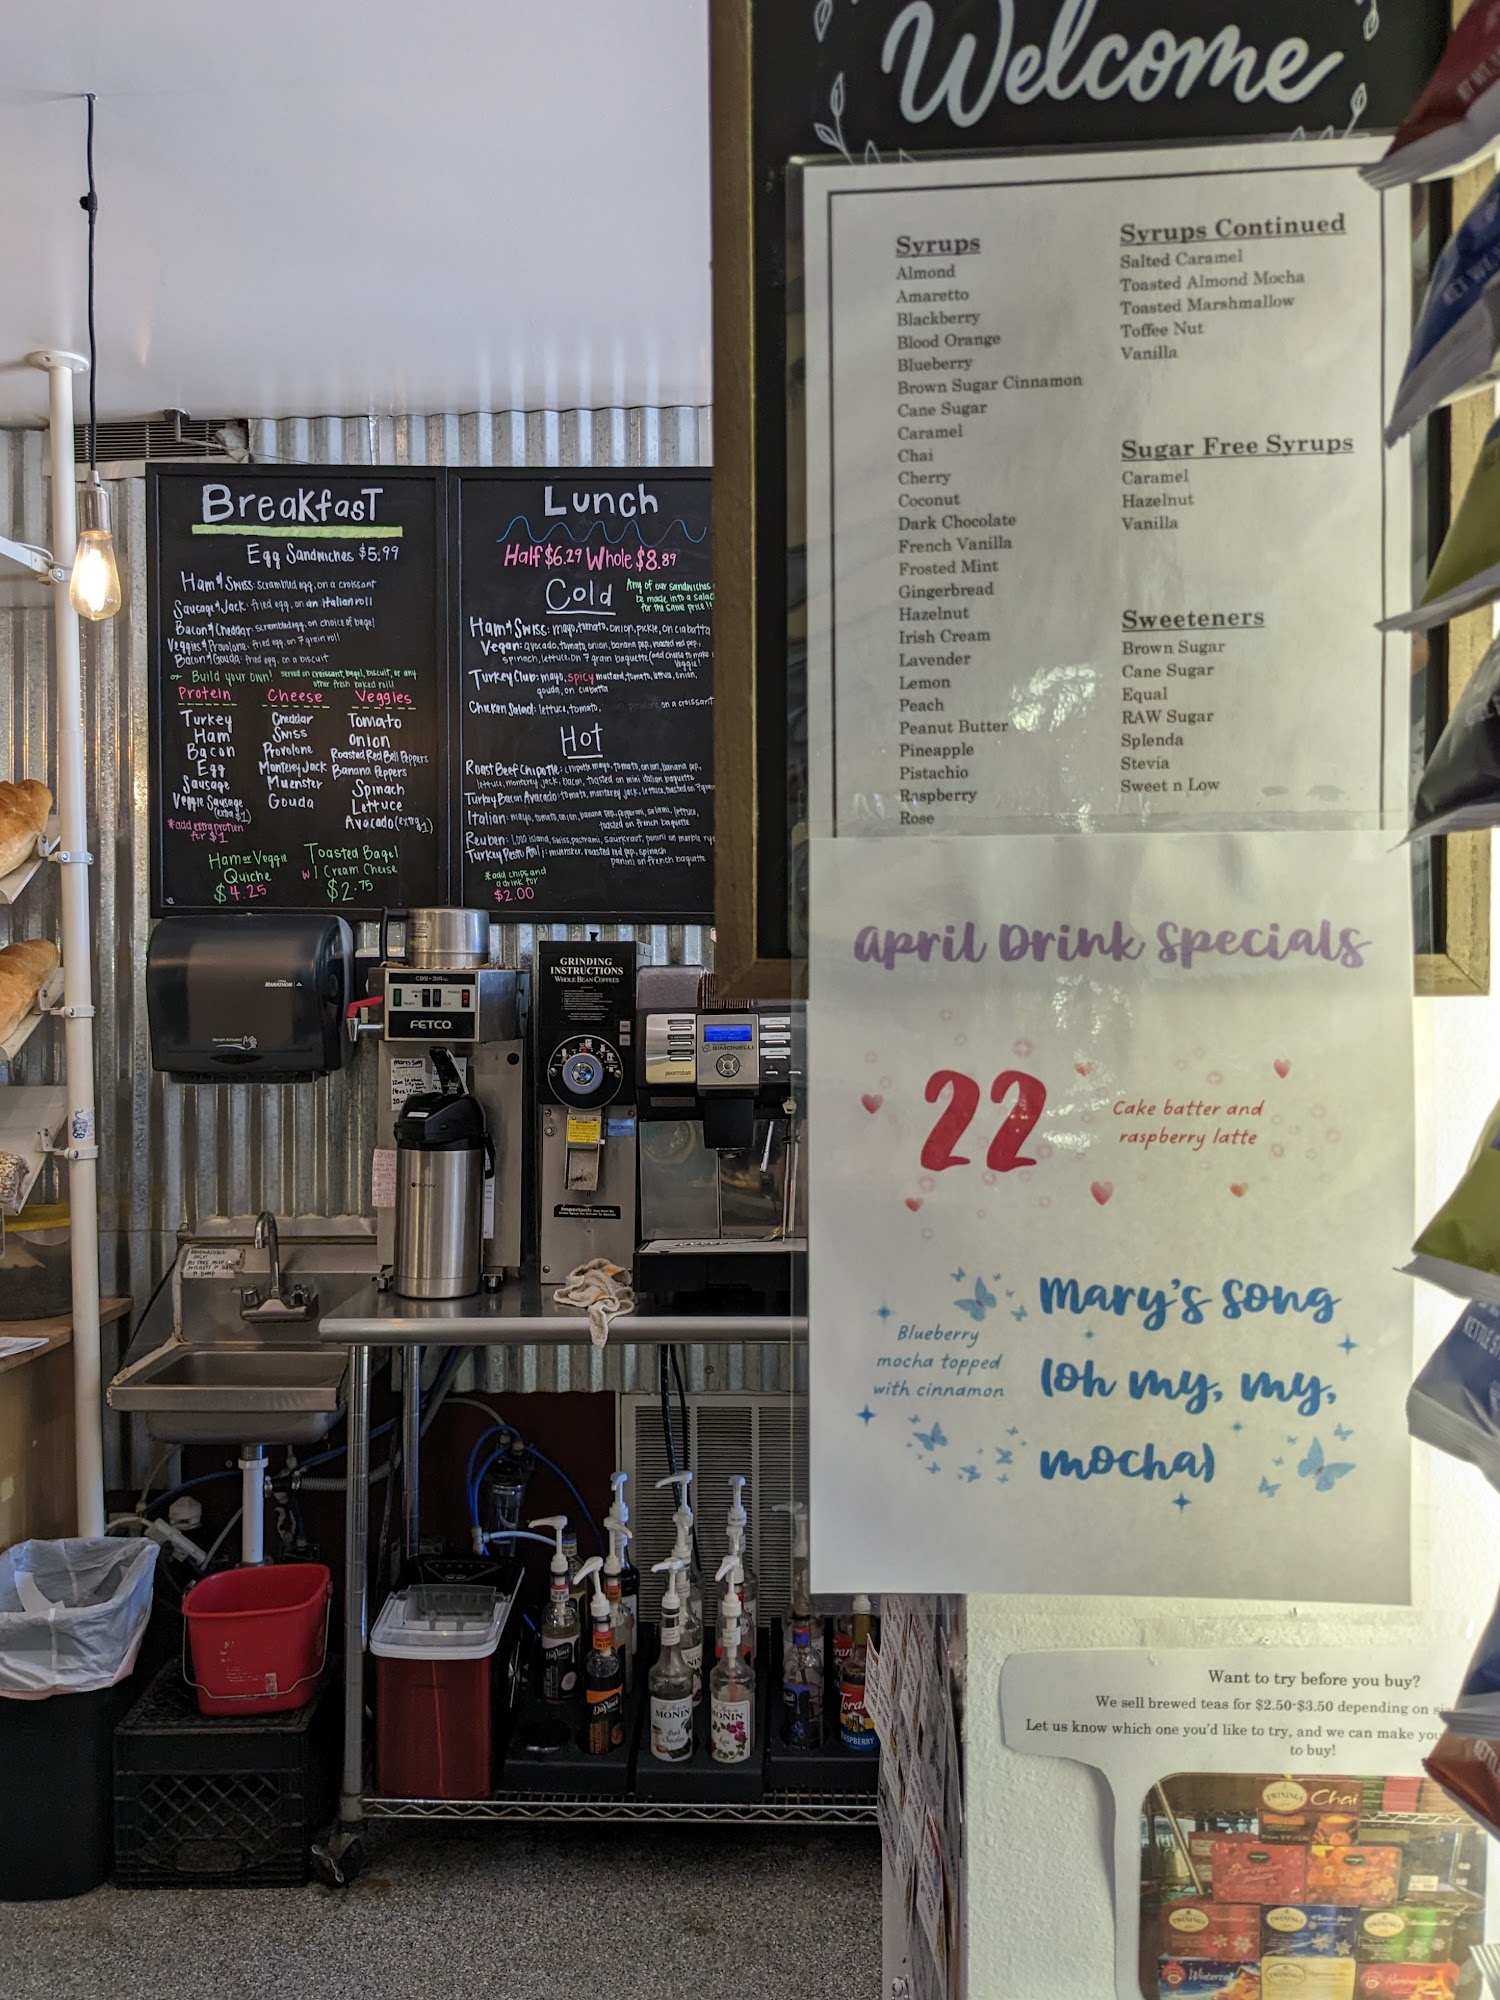 Welcome
Syrups
Almond
Amaretto
Blackberry
Blood Orange
Blueberry
Brown Sugar Cinnamon
Cane Sugar
Caramel
Chai
Cherry
Coconut
Dark Chocolate
French Vanilla
Frosted Mint
Gingerbread
Hazelnut
Irish Cream
Lavender
Lemon
Peach
Peanut Butter
Pineapple
Pistachio
Raspberry
Rose
Syrups Continued
Salted Caramel
Toasted Almond Mocha
Toasted Marshmallow
Toffee Nut
Vanilla
Sugar Free Syrups
Caramel
Hazelnut
Vanilla
Sweeteners
Brown Sugar
Cane Sugar
Equal
RAW Sugar
Splenda
Stevia
Sweet n Low
April Drink Specials
22
Cake batter and
raspberry latte
Mary's Song
(Oh my, my,
mocha)
Blueberry
mocha topped
with cinnamon
Want to try before you buy?
We sell brewed teas for $2.50-$3.50 depending on
Let us know which one you'd like to try, and we can make you
to buy!
TWININGS
Chai
Breakfast
Egg Sandwiches $5.99
Ham & Swiss: scrambled egg, on a croissant
Sausage & Jack: fried egg, on an Italian roll
Bacon & Cheddar: scrambled egg, on choice of bagel
Veggies & Provolone: fried egg, on 7 grain roll
Bacon & Gouda: fried egg, on a biscuit
or Build your own! served on croissant, bagel, biscuit, or any
other fresh baked roll!
Protein
Turkey
Ham
Bacon
Egg
Sausage
Veggie Sausage
(extra $1)
*add extra protein
for $1
Cheese
Cheddar
Swiss
Provolone
Monterey Jack
Muenster
Gouda
Veggies
Tomato
Onion
Roasted Red Bell Peppers
Banana Peppers
Spinach
Lettuce
Avocado (extra $1)
Ham or Veggie
Quiche
$4.25
Toasted Bagel
w/ Cream Cheese
$2.75
Lunch
Half $6.29 Whole $8.89
Cold
Any of our sandwiches
be made into a salad
for the same price!!
Ham & Swiss: mayo, tomato, onion, pickle, on ciabatta
Vegan: avocado, tomato, onion, banana pep, roasted red pep,
spinach, lettuce, on 7 grain baguette (add cheese to make
Veggie!
Turkey Club: mayo, spicy mustard, tomato, lettuce, onion,
gouda, on ciabatta
Chicken Salad: lettuce, tomato, on a croissant
Hot
Roast Beef Chipotle: chipotle mayo, tomato, onion, banana pep,
lettuce, monterey jack, bacon, toasted on mini italian baguette
Turkey Bacon Avocado: tomato, monterey jack, lettuce, toasted on 7 grain
Italian: mayo, tomato, onion, banana pep, pepperoni, salami, lettuce,
toasted on french baguette
Reuben: 1,000 island, swiss, pastrami, sourkraut, panini on marble rye
Turkey Pesto Aioli: muenster, roasted red pep, spinach
panini on french baguette
*add chips and
a drink for
$2.00
FETCO
GRINDING
INSTRUCTIONS
WHOLE BEAN COFFEES
SIMONELLI
DaVinci
DaVinci
MONIN
Dark
Chocolate
MONIN
Rose
Torani
RASPBERRY